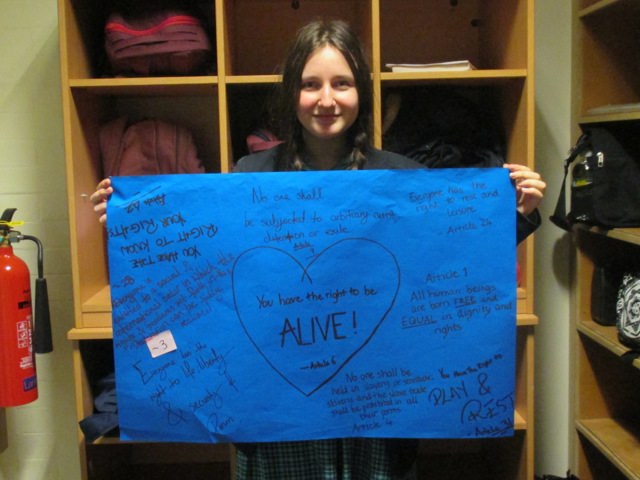 No one shall
be subjected to arbitrary arrest
detention or exile
Article
Everyone has the
right to rest and
leisure
- Article 24
Article 42
YOUR RIGHTS
RIGHT TO KNOW
YOU HAVE THE
Everyone is
entitled to a social &
international order in which the
rights
can be fully
realised
~3
Everyone has the
right to life liberty
& security of
Person
You have the right to be
ALIVE!
- Article 6
Article 1
All human beings
are born FREE and
EQUAL in dignity and
rights
No one shall be
held in slavery or servitude;
slavery and the slave trade
shall be prohibited in all
their forms
Article 4
You Have The Right To
PLAY &
REST
- Article 31